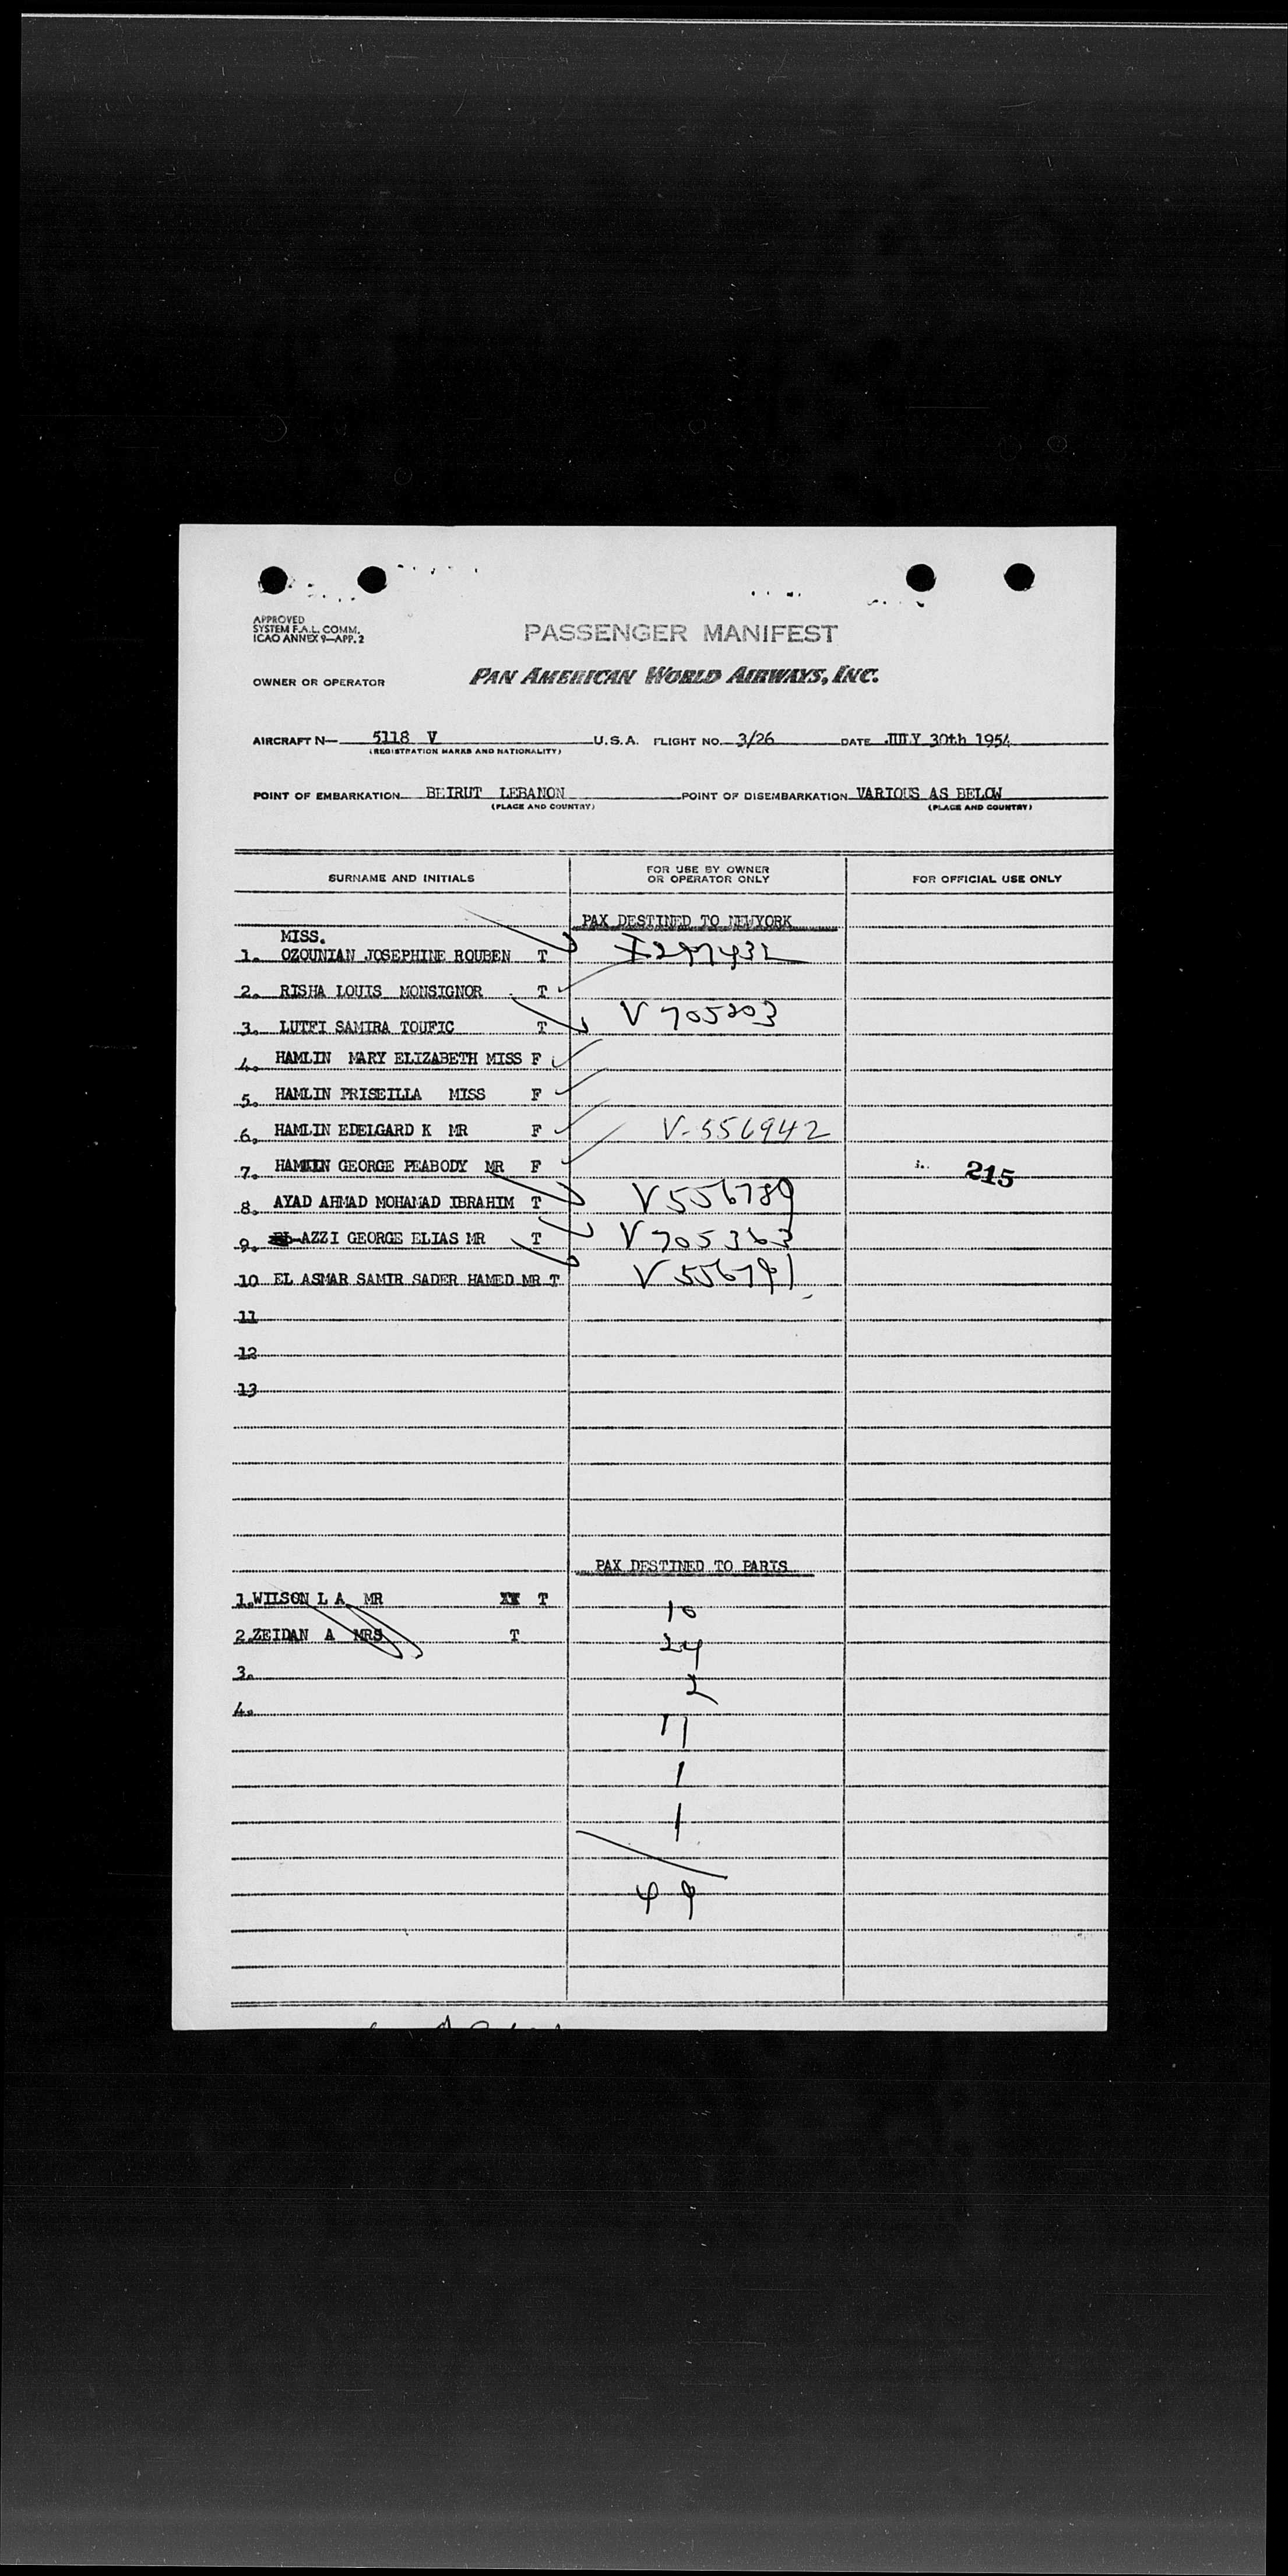 APPROVED
SYSTEM F.A.L. COMM.
ICAO ANNEX 9—APP. 2
PASSENGER MANIFEST
OWNER OR OPERATOR
PAN AMERICAN WORLD AIRWAYS, INC.
AIRCRAFT N— 5118 V U.S.A. FLIGHT NO. 3/26 DATE JULY 30th 1954
(REGISTRATION MARKS AND NATIONALITY)
POINT OF EMBARKATION BEIRUT LEBANON POINT OF DISEMBARKATION VARIOUS AS BELOW
(PLACE AND COUNTRY) (PLACE AND COUNTRY)
SURNAME AND INITIALS FOR USE BY OWNER OR OPERATOR ONLY FOR OFFICIAL USE ONLY
PAX DESTINED TO NEWYORK
MISS.
1. OZOUNIAN JOSEPHINE ROUBEN T
2. RISHA LOUIS MONSIGNOR T
3. LUTFI SAMIRA TOUFIC T V 705203
4. HAMLIN MARY ELIZABETH MISS F
5. HAMLIN PRISEILLA MISS F
6. HAMLIN EDELGARD K MR F V-556942
7. HAMLIN GEORGE PEABODY MR F 215
8. AYAD AHMAD MOHAMAD IBRAHIM T V 556789
9. AZZI GEORGE ELIAS MR T V 705363
10 EL ASMAR SAMIR SADER HAMED MR T V 556791
11
12
13
PAX DESTINED TO PARIS
1. WILSON L A MR XX T 10
2. ZEIDAN A MRS T 24
3. 2
4. 11
1
1
49